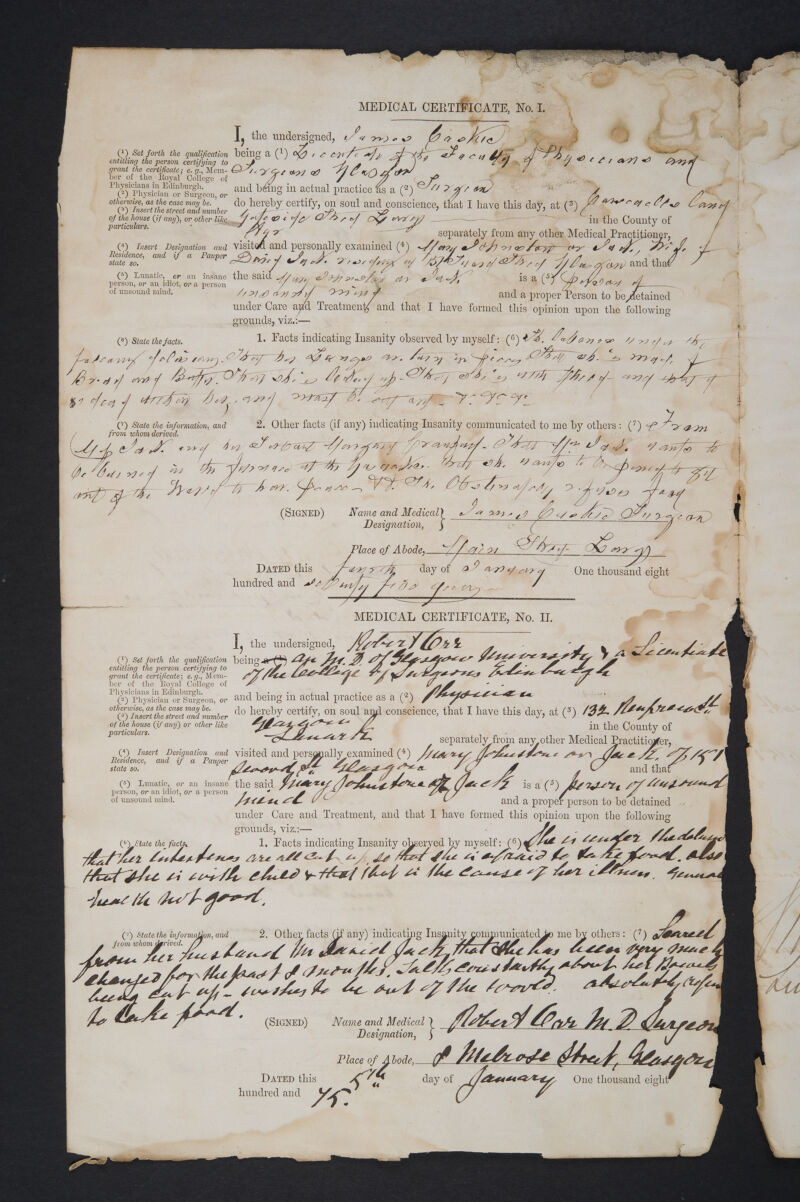 MEDICAL CERTIFICATE, No. I.
I, the undersigned, James Caskie
(1) Set forth the qualification entitling the person certifying to grant the certificate; e.g., Member of the Royal College of Physicians in Edinburgh.
being a (1) Licentiate of the Faculty of Physicians and
Surgeons Glasgow
(2) Physician or Surgeon, or otherwise, as the case may be.
and being in actual practice as a (2) Surgeon
(3) Insert the street and number of the house (if any), or other like particulars.
do hereby certify, on soul and conscience, that I have this day, at (3)
Street Largs in the County of
Ayr separately from any other Medical Practitioner,
(4) Insert Designation and Residence, and if a Pauper state so.
visited and personally examined (4) Mary Johnston or Jack, Wife of
David Jack residing at 151 Street Glasgow and that
(5) Lunatic, or an insane person, or an idiot, or a person of unsound mind.
the said Mary Johnston or Jack is a (5) person of
unsound mind and a proper Person to be detained
under Care and Treatment, and that I have formed this opinion upon the following
grounds, viz.:—
(6) State the facts.
1. Facts indicating Insanity observed by myself: (6) She labours under the
following delusions. That her Lungs are torn in pieces That she is made of
Bread and Butter. That she is That she is
dead within her, and must be cut
(7) State the information, and from whom derived.
2. Other facts (if any) indicating Insanity communicated to me by others: (7) From
Mr Jack and her Servant Margaret Crawford. That Mrs Jack wants to
be burned in the furnace at the that she wants to be to get
out of the World to have peace She Obstinately refuses food
(SIGNED) Name and Medical Designation, James Caskie Surgeon
Place of Abode, Main Street Largs
DATED this fourth day of January One thousand eight
hundred and seventy five years
MEDICAL CERTIFICATE, No. II.
I, the undersigned, Robert Orr
(1) Set forth the qualification entitling the person certifying to grant the certificate; e.g., Member of the Royal College of Physicians in Edinburgh.
being a (1) an M.D. of Glasgow University & a Licentiate
of the College of Surgeons Edinburgh
(2) Physician or Surgeon, or otherwise, as the case may be.
and being in actual practice as a (2) Physician
(3) Insert the street and number of the house (if any) or other like particulars.
do hereby certify, on soul and conscience, that I have this day, at (3) 132 Renfrew St.
Glasgow in the County of
Lanark separately from any other Medical Practitioner,
(4) Insert Designation and Residence, and if a Pauper state so.
visited and personally examined (4) Mary Johnstone or Jack, of 151
St Glasgow and that
(5) Lunatic, or an insane person, or an idiot, or a person of unsound mind.
the said Mary Johnstone or Jack is a (5) person of unsound
mind and a proper person to be detained
under Care and Treatment, and that I have formed this opinion upon the following
grounds, viz.:—
(6) State the facts.
1. Facts indicating Insanity observed by myself: (6) She is under the delusion
that her Intestines are all cut up, so that she is afraid to take food. also
that she is with child & that that is the cause of her illness. General
health not good.
(7) State the information, and from whom derived.
2. Other facts (if any) indicating Insanity communicated to me by others: (7) Learned
from her husband Mr David Jack, that she has been very much
changed for the past 8 months. Talks constantly about her Bowels
being cut up – wishes to be out of the world. absolutely refuses
to take food.
(SIGNED) Name and Medical Designation, Robert Orr M.D. Surgeon
Place of Abode, 8 Melrose Street, Glasgow
DATED this 5th day of January One thousand eight
hundred and 75.